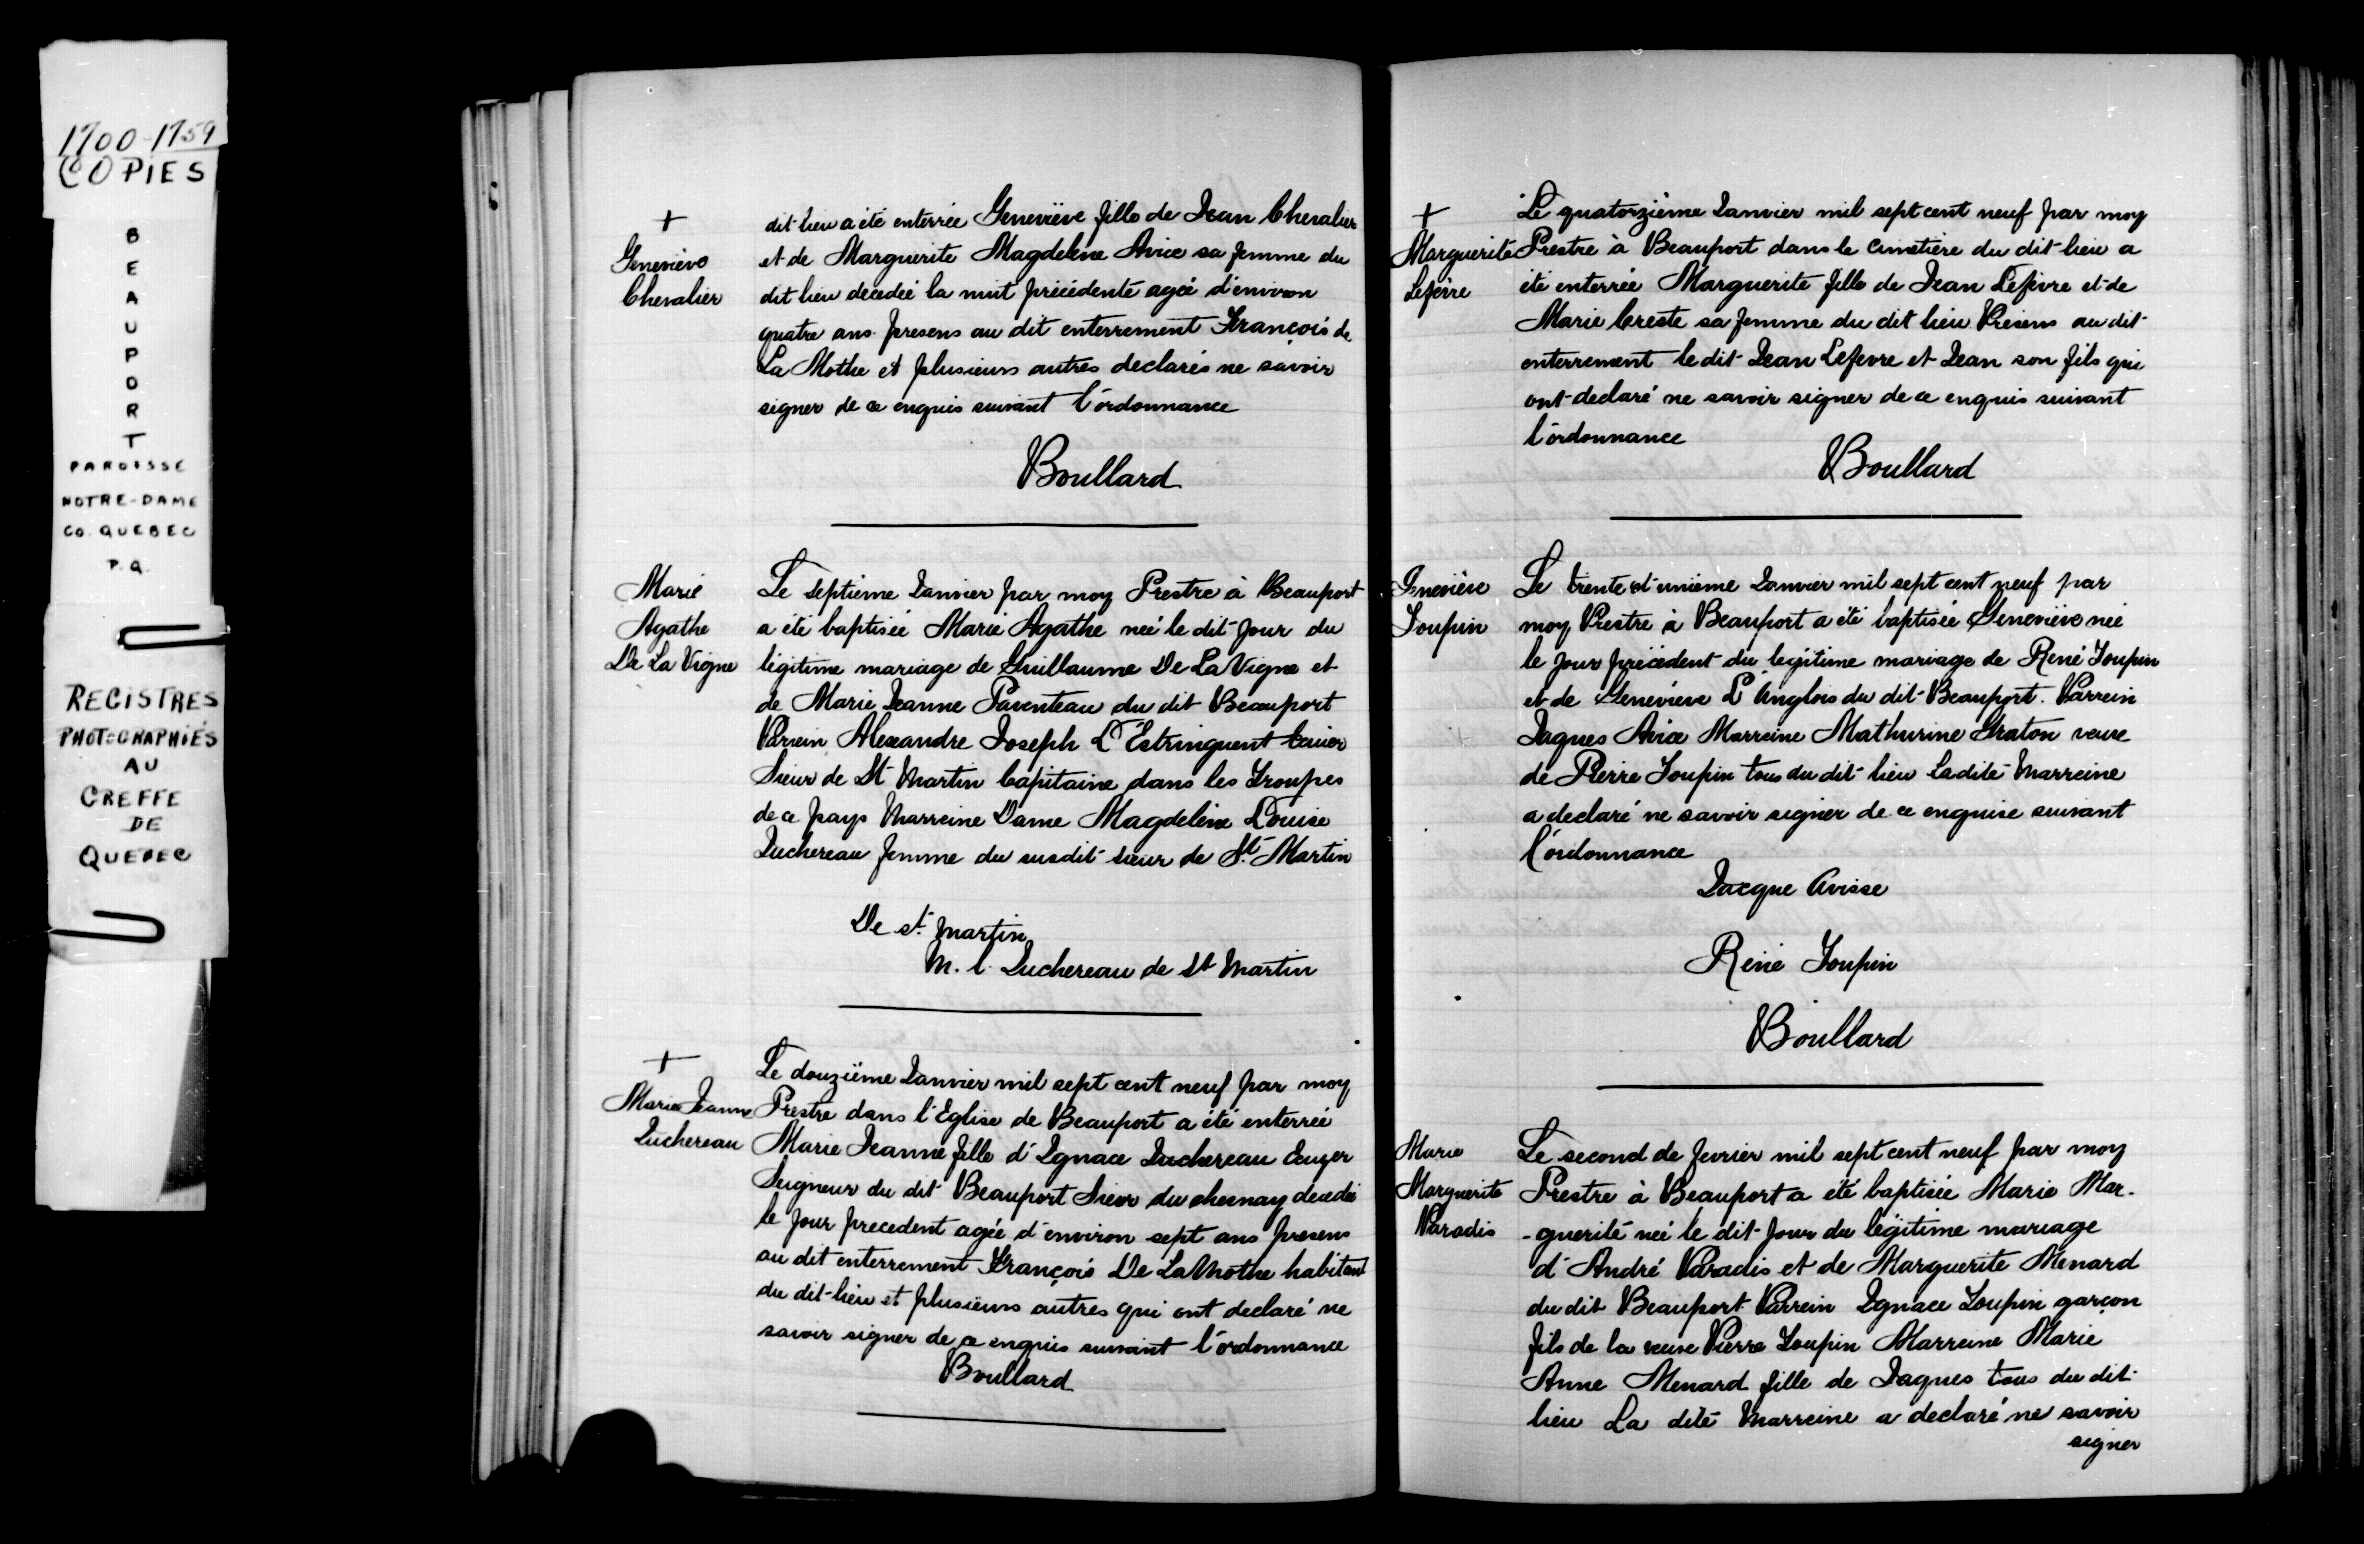 1700-1759
COPIES
BEAUPORT
PAROISSE
NOTRE-DAME
CO. QUEBEC
P.Q.
REGISTRES
PHOTOGRAPHIÉS
AU
GREFFE
DE
QUEBEC
+
Geneviève
Chevalier
dit lieu a été enterrée Geneviève fille de Jean Chevalier
et de Marguerite Magdelene Avice sa femme du
dit lieu decedée la nuit précédente agée d'environ
quatre ans presens au dit enterrement François de
La Mothe et plusieurs autres declarés ne savoir
signer de ce enquis suivant l'ordonnance
Boullard
Marie
Agathe
De La Vigne
Le septième Janvier par moy Prestre à Beauport
a été baptisée Marie Agathe née le dit Jour du
légitime mariage de Guillaume De La Vigne et
de Marie Jeanne Parenteau du dit Beauport
Parrein Alexandre Joseph L'Estringuent
Sieur de St Martin Capitaine dans les Troupes
de ce pays Marreine Dame Magdelene Louise
Juchereau femme du susdit sieur de St Martin
De st Martin
M. l. Juchereau de St Martin
+
Marie Jeanne
Juchereau
Le douzième Janvier mil sept cent neuf par moy
Prestre dans l'Eglise de Beauport a été enterrée
Marie Jeanne fille d'Ignace Juchereau Ecuyer
Seigneur du dit Beauport Sieur du chesnay decedée
le jour precedent agée d'environ sept ans presens
au dit enterrement François De La Mothe habitant
du dit-lieu et plusieurs autres qui ont declaré ne
savoir signer de ce enquis suivant l'ordonnance
Boullard
+
Marguerite
Lefevre
Le quatorzième Janvier mil sept cent neuf par moy
Prestre à Beauport dans le cimetière du dit-lieu a
été enterrée Marguerite fille de Jean Lefevre et de
Marie Creste sa femme du dit lieu Présens au dit
enterrement le dit Jean Lefevre et Jean son fils qui
ont declaré ne savoir signer de ce enquis suivant
l'ordonnance
Boullard
Geneviève
Toupin
Le trente et unième Janvier mil sept cent neuf par
moy Prestre à Beauport a été baptisée Geneviève née
le jour précédent du legitime mariage de René Toupin
et de Geneviève L'Anglois du dit Beauport. Parrein
Jaques Avice Marreine Mathurine Graton veuve
de Pierre Toupin tous du dit-lieu ladite Marreine
a declaré ne savoir signer de ce enquise suivant
l'ordonnance
Jacque Avisse
René Toupin
Boullard
Marie
Marguerite
Paradis
Le second de fevrier mil sept cent neuf par moy
Prestre à Beauport a été baptisée Marie Mar-
-guerite née le dit Jour du légitime mariage
d'André Paradis et de Marguerite Menard
du dit Beauport Parrein Ignace Toupin garçon
fils de la veuve Pierre Toupin Marreine Marie
Anne Menard fille de Jaques tous du dit
lieu La dite Marreine a declaré ne savoir
signer